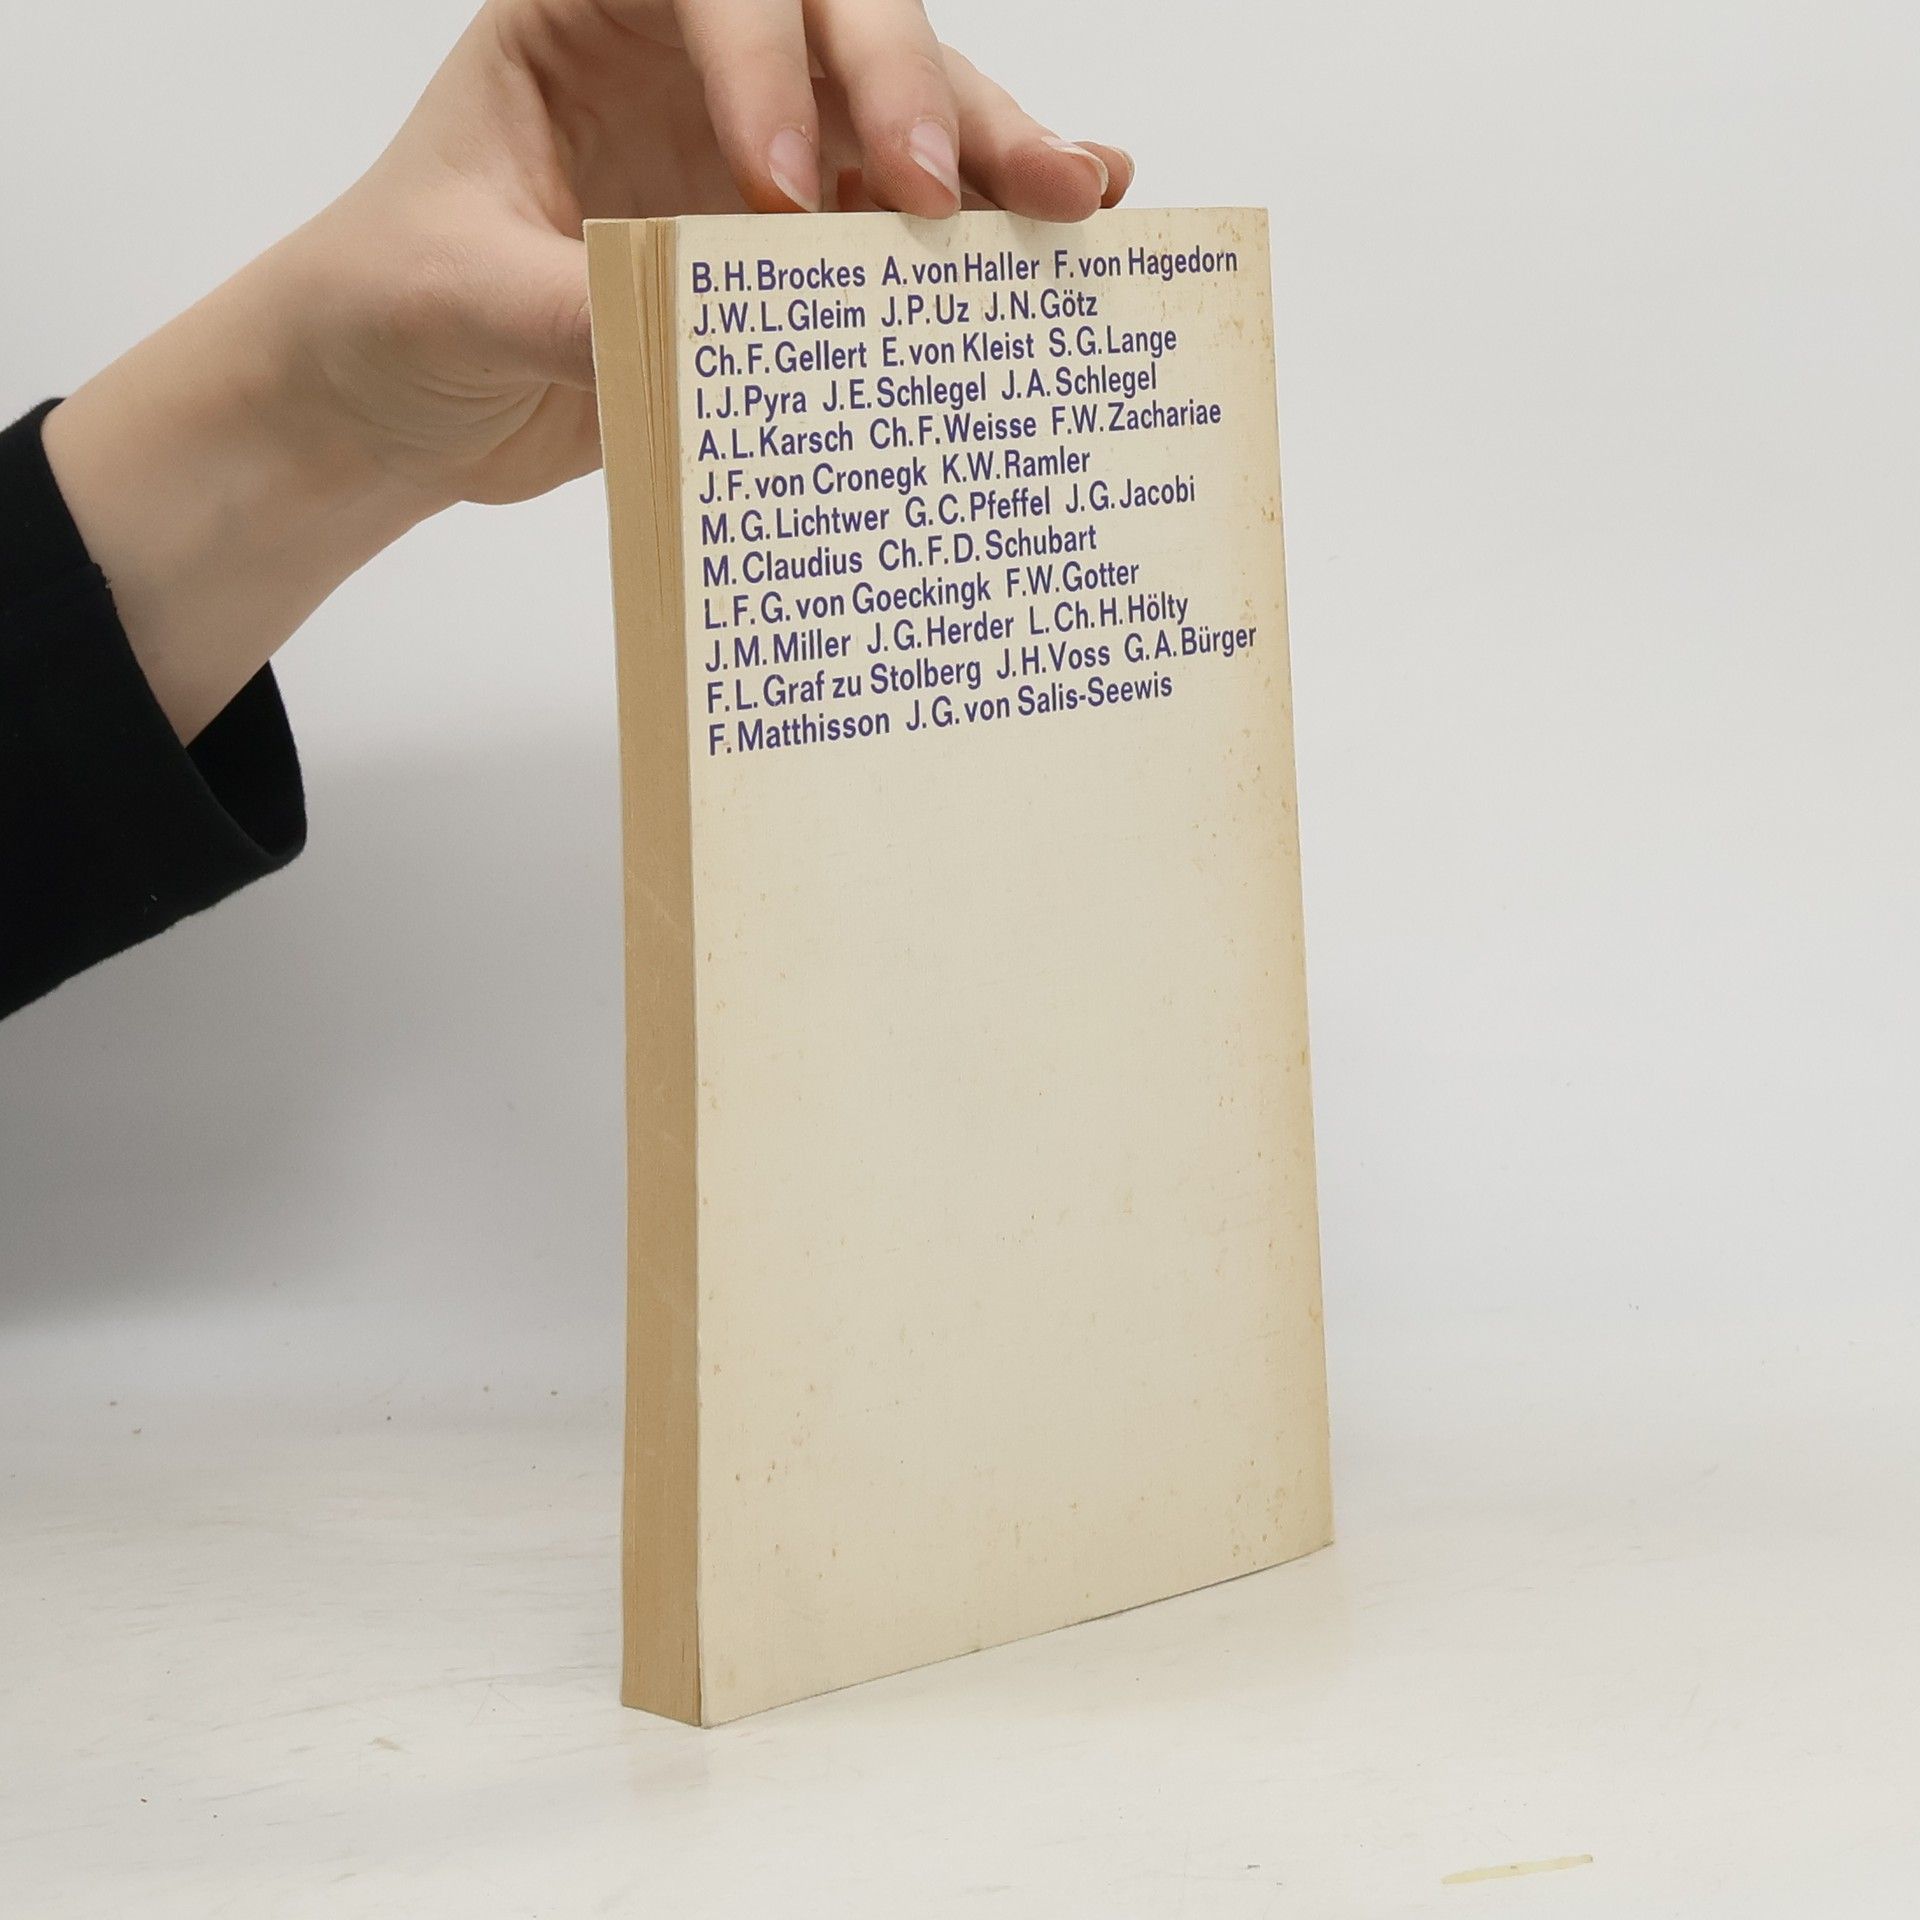 B. H. Brockes A. von Haller F. von Hagedorn
J. W. L. Gleim J. P. Uz J. N. Götz
Ch. F. Gellert E. von Kleist S. G. Lange
I. J. Pyra J. E. Schlegel J. A. Schlegel
A. L. Karsch Ch. F. Weisse F. W. Zachariae
J. F. von Cronegk K. W. Ramler
M. G. Lichtwer G. C. Pfeffel J. G. Jacobi
M. Claudius Ch. F. D. Schubart
L. F. G. von Goeckingk F. W. Gotter
J. M. Miller J. G. Herder L. Ch. H. Hölty
F. L. Graf zu Stolberg J. H. Voss G. A. Bürger
F. Matthisson J. G. von Salis-Seewis